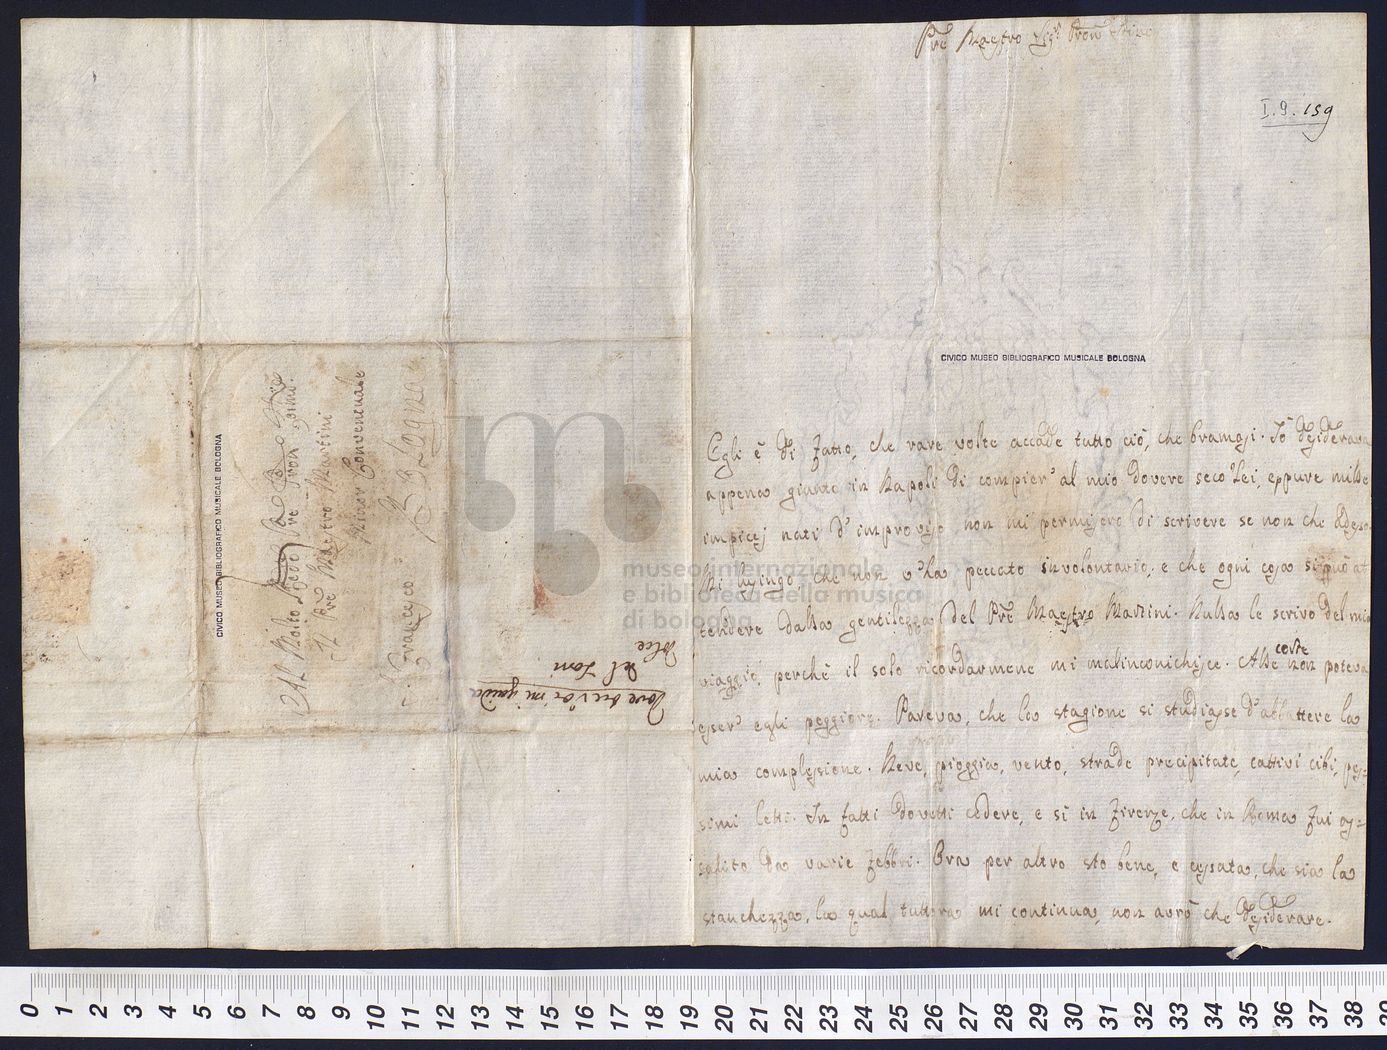 Pre Maestro Sigr Pron Stimo
I. 9. 159
CIVICO MUSEO BIBLIOGRAFICO MUSICALE BOLOGNA
Egli è di fatto, che rare volte accade tutto ciò, che bramasi. Io desiderava
appena giunto in Napoli di compier' al mio dovere seco Lei, eppure mille
impicej nati d'improvviso non mi permisero di scrivere se non che adesso
Mi lusingo che non v'ha peccato involontario, e che ogni cosa si può at
tendere dalla gentilezza del Pre Maestro Martini. Nulla le scrivo del mio
viaggio, perchè il solo ricordarmene mi malinconichisce. Alle coste non poteva
esser' egli peggiore. Pareva, che la stagione si studiasse d'abbattere la
mia complessione. Neve, pioggia, vento, strade precipitate, cattivi cibi, pes=
simi letti. In fatti dovetti cedere, e sì in Firenze, che in Roma fui as=
salito da varie febbri. Ora per altro sto bene, e cessata, che sia la
stanchezza, la qual tuttora mi continua, non avrò che desiderare.
CIVICO MUSEO BIBLIOGRAFICO MUSICALE BOLOGNA
Al Molto Rede Pre Pron
Il Pre Maestro Martini
Minor Conventuale
Bologna
S. Francesco
Dove
mi guida
museo internazionale
e biblioteca della musica
di bologna
0 1 2 3 4 5 6 7 8 9 10 11 12 13 14 15 16 17 18 19 20 21 22 23 24 25 26 27 28 29 30 31 32 33 34 35 36 37 38